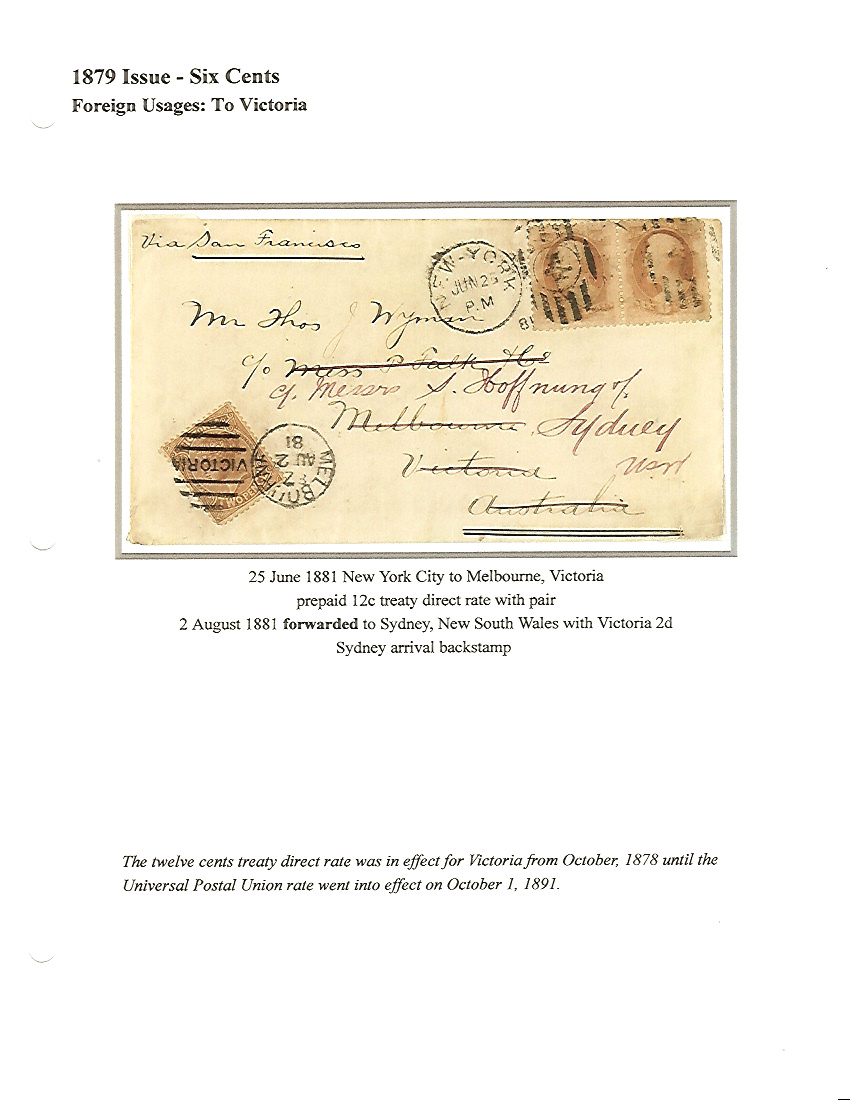 1879 Issue - Six Cents
Foreign Usages: To Victoria
Via San Francisco
NEW-YORK
JUN 25
P.M
81
Mr Thos J Wyman
c/o Miss P Falk & Co
c/. Messrs S. Hoffnung &/.
Melbourne, Sydney
Victoria NSW
Australia
VICTORIA
TWOPENCE
MELBOURNE
AU 2
81
25 June 1881 New York City to Melbourne, Victoria
prepaid 12c treaty direct rate with pair
2 August 1881 forwarded to Sydney, New South Wales with Victoria 2d
Sydney arrival backstamp
The twelve cents treaty direct rate was in effect for Victoria from October, 1878 until the
Universal Postal Union rate went into effect on October 1, 1891.